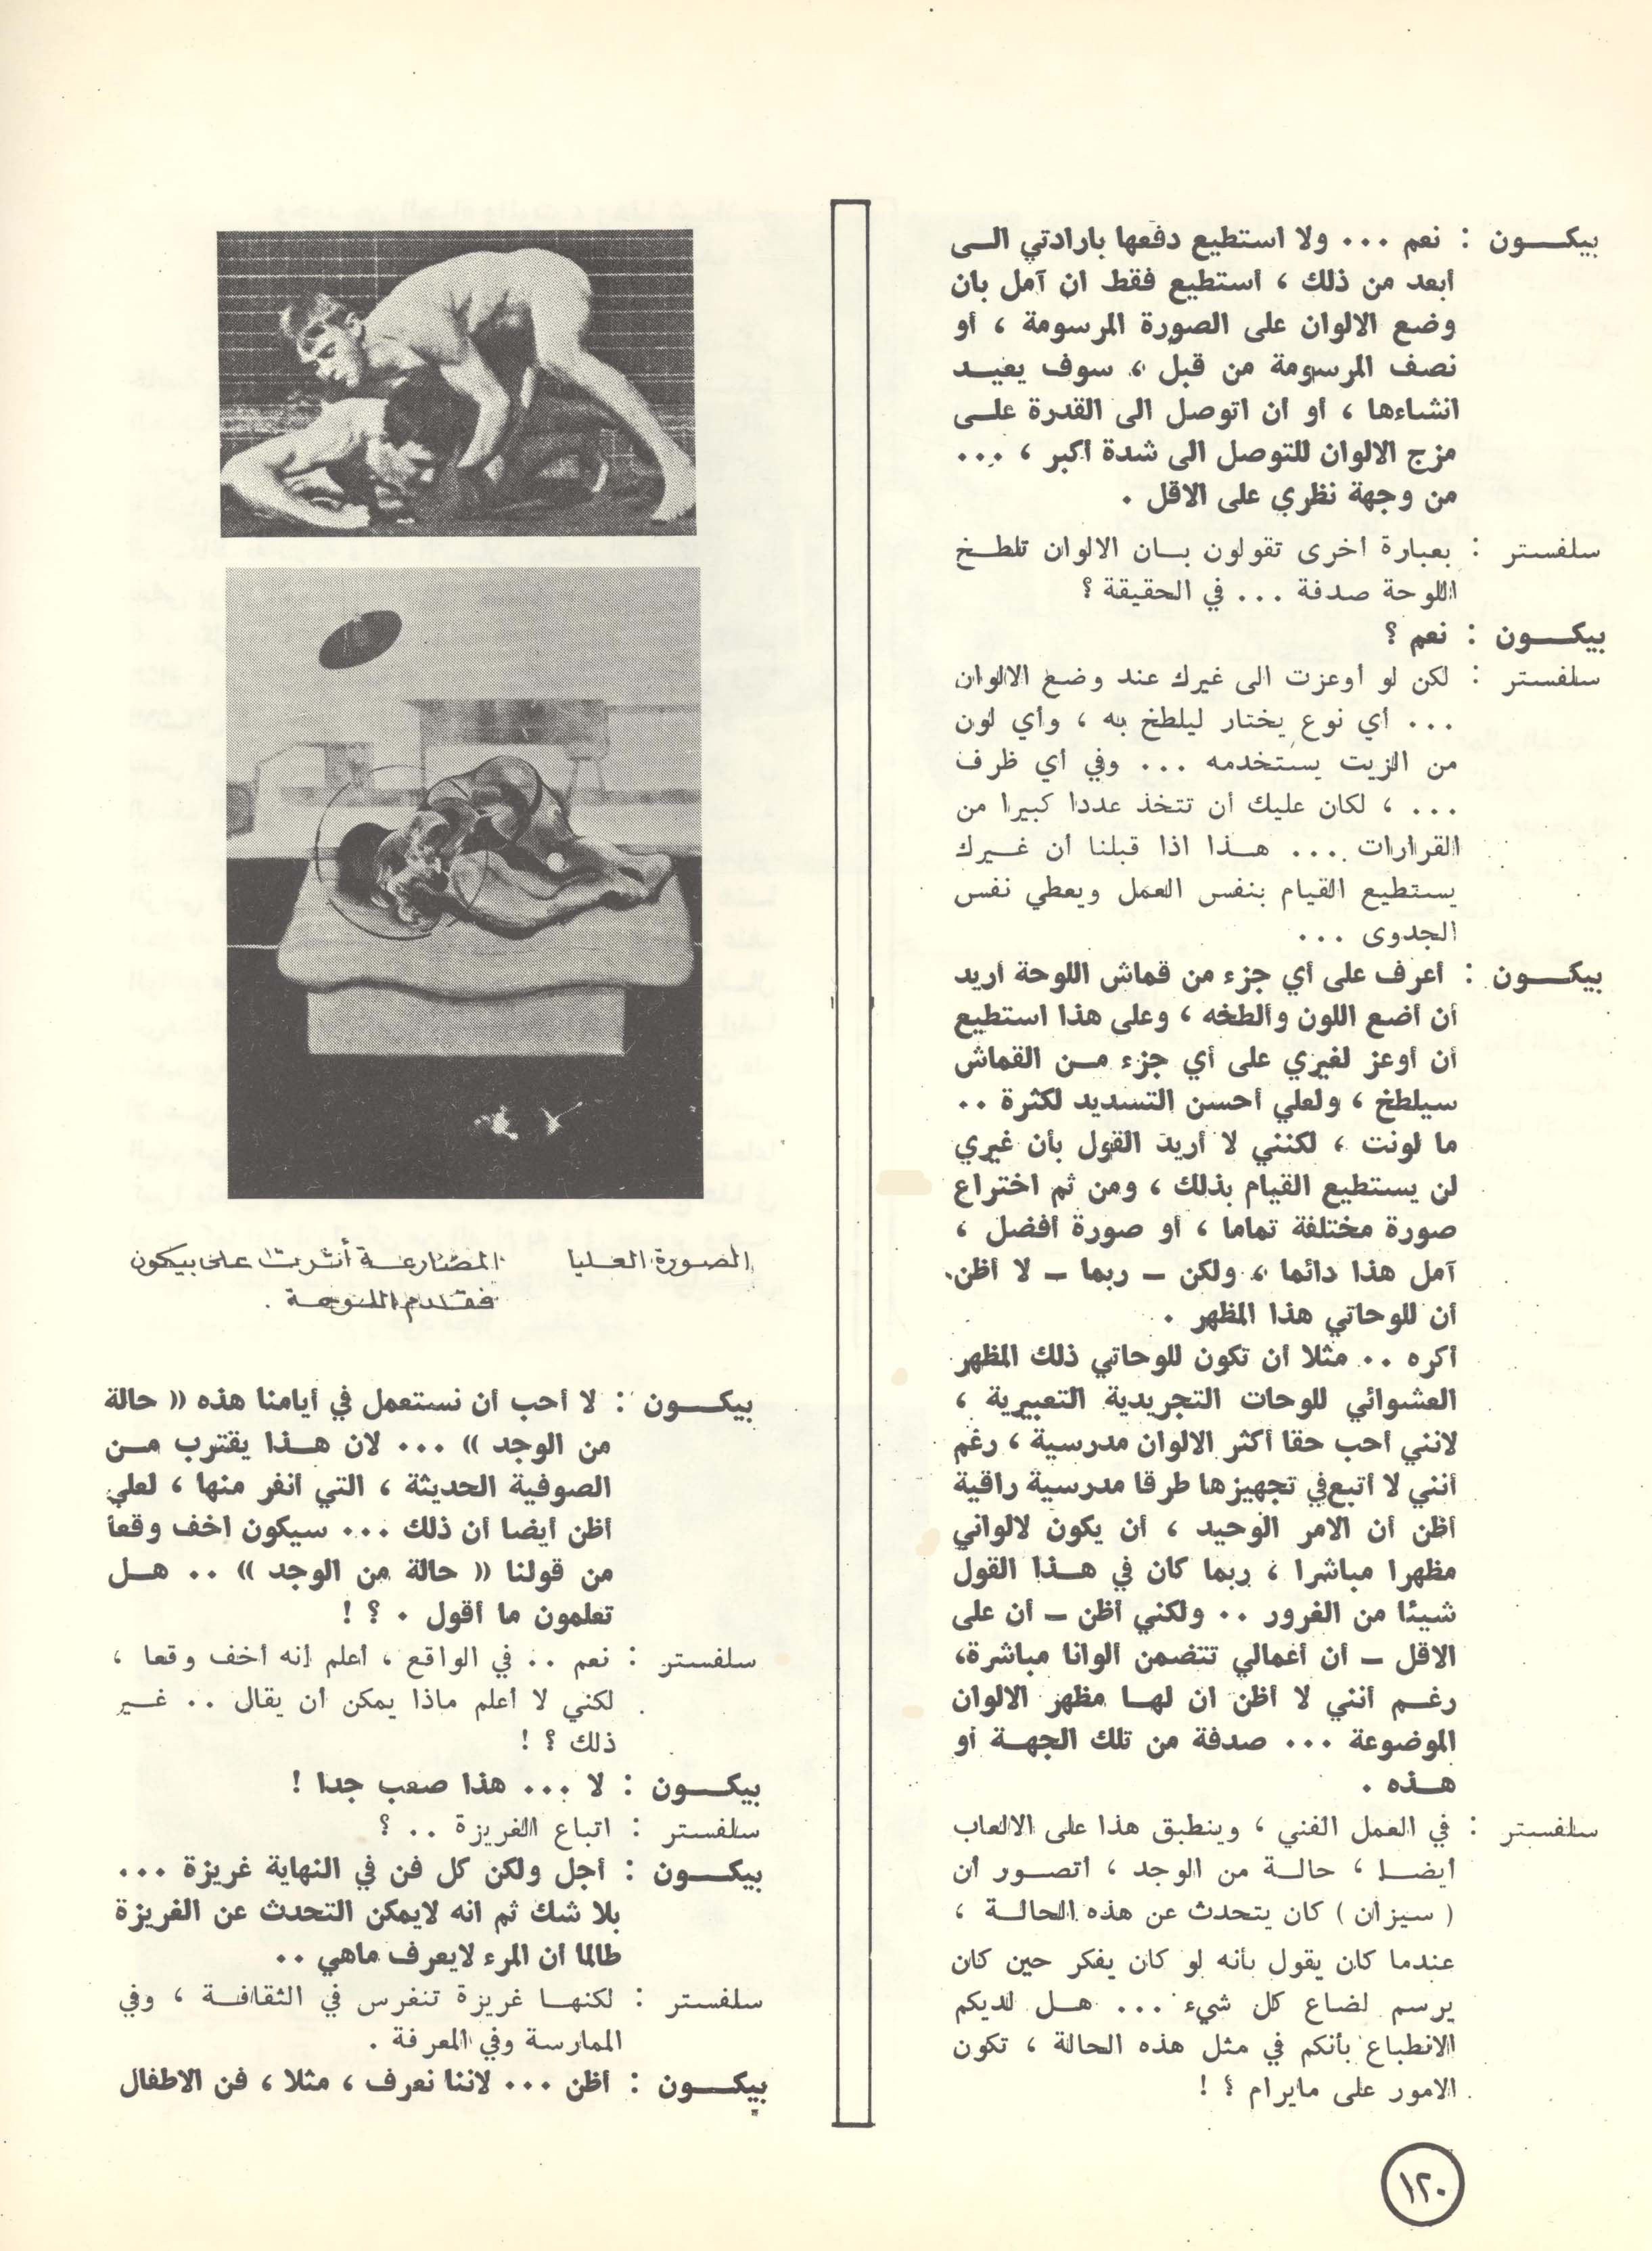 بيكــون : نعم ... ولا استطيع دفعها بارادتي الــى
أبعد من ذلك ، أستطيع فقط ان آمل بان
وضع الالوان على الصورة المرسومة ، أو
نصف المرسومة من قبل ، سوف يعيــد
انشاءها ، أو أن اتوصل الى القدرة علــى
مزج الالوان للتوصل الى شدة أكبر ، ...
من وجهة نظري على الاقل .
سلفستر : بعبارة أخرى تقولون بــان الالوان تلطــخ
اللوحة صدفة ... في الحقيقة ؟
بيكــون : نعم ؟
سلفستر : لكن لو أوعزت الى غيرك عند وضع الالوان
... أي نوع يختار ليلطخ به ، وأي لون
من الزيت يستخدمه ... وفي أي ظرف
... ، لكان عليك أن تتخذ عددا كبيرا من
القرارات ... هــذا اذا قبلنا أن غــيرك
يستطيع القيام بنفس العمل ويعطي نفس
الجدوى ...
بيكــون : أعرف على أي جزء من قماش اللوحة أريد
أن أضع اللون وألطخه ، وعلى هذا استطيع
أن أوعز لغيري على أي جزء مــن القماش
سيلطخ ، ولعلي أحسن التسديد لكثرة ..
ما لونت ، لكنني لا أريد القول بأن غيري
لن يستطيع القيام بذلك ، ومن ثم اختراع
صورة مختلفة تماما ، أو صورة أفضل ،
آمل هذا دائما ، ولكن ــ ربما ــ لا أظن
أن للوحاتي هذا المظهر .
أكره .. مثلا أن تكون للوحاتي ذلك المظهر
العشوائي للوحات التجريدية التعبيرية ،
لانني أحب حقا أكثر الالوان مدرسية ، رغم
أنني لا أتبع في تجهيزها طرقا مدرسية راقية
أظن أن الامر الوحيد ، أن يكون لالواني
مظهرا مباشرا ، ربما كان في هــذا القول
شيئا من الغرور .. ولكني أظن ــ أن على
الاقل ــ أن أعمالي تتضمن ألوانا مباشرة،
رغــم أنني لا أظن ان لهــا مظهر الالوان
الموضوعة ... صدفة من تلك الجهــة أو
هــذه .
سلفستر : في العمل الفني ، وينطبق هذا على الالعاب
أيضــا ، حالــة من الوجد ، أتصــور أن
( سيزان ) كان يتحدث عن هذه الحالــة ،
عندما كان يقول بأنه لو كان يفكر حين كان
يرسم لضاع كل شيء ... هــل لديكم
الانطباع بأنكم في مثل هذه الحالة ، تكون
الامور على مايرام ؟ !
الصورة العليا المصارعة أثرت على بيكون
فقدم اللوحة .
بيكــون : لا أحب أن نستعمل في أيامنا هذه « حالة
من الوجد » ... لان هــذا يقترب مــن
الصوفية الحديثة ، التي أنفر منها ، لعلي
أظن أيضا أن ذلك ... سيكون اخف وقعا
من قولنا « حالة من الوجد » .. هــل
تعلمون ما أقول . ؟ !
سلفستر : نعم .. في الواقع ، أعلم أنه أخف وقعا ،
لكني لا أعلم ماذا يمكن أن يقال .. غــير
ذلك ؟ !
بيكــون : لا ... هذا صعب جدا !
سلفستر : اتباع الغريزة .. ؟
بيكــون : أجل ولكن كل فن في النهاية غريزة ...
بلا شك ثم انه لايمكن التحدث عن الغريزة
طالما أن المرء لايعرف ماهي ..
سلفستر : لكنهــا غريزة تنغرس في الثقافــة ، وفي
الممارسة وفي المعرفة .
بيكــون : أظن ... لاننا نعرف ، مثلا ، فن الاطفال
١٢٠